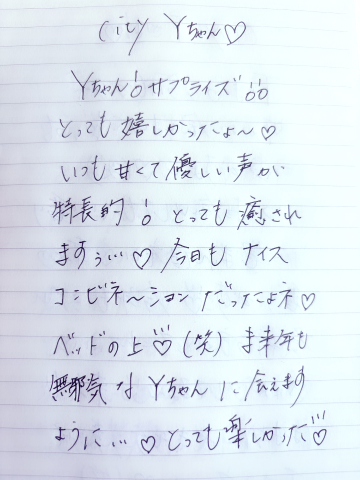 City Yちゃん♡
Yちゃん!!サプライズ!!
とっても嬉しかったよ〜♡
いつも甘くて優しい声が
特長的!! とっても癒され
ますぅ…♡ 今日もナイス
コンビネ〜ションだったよネ♡
ベッドの上♡(笑) ま来年も
無邪気なYちゃんに会えます
ように…♡とっても楽しかった♡